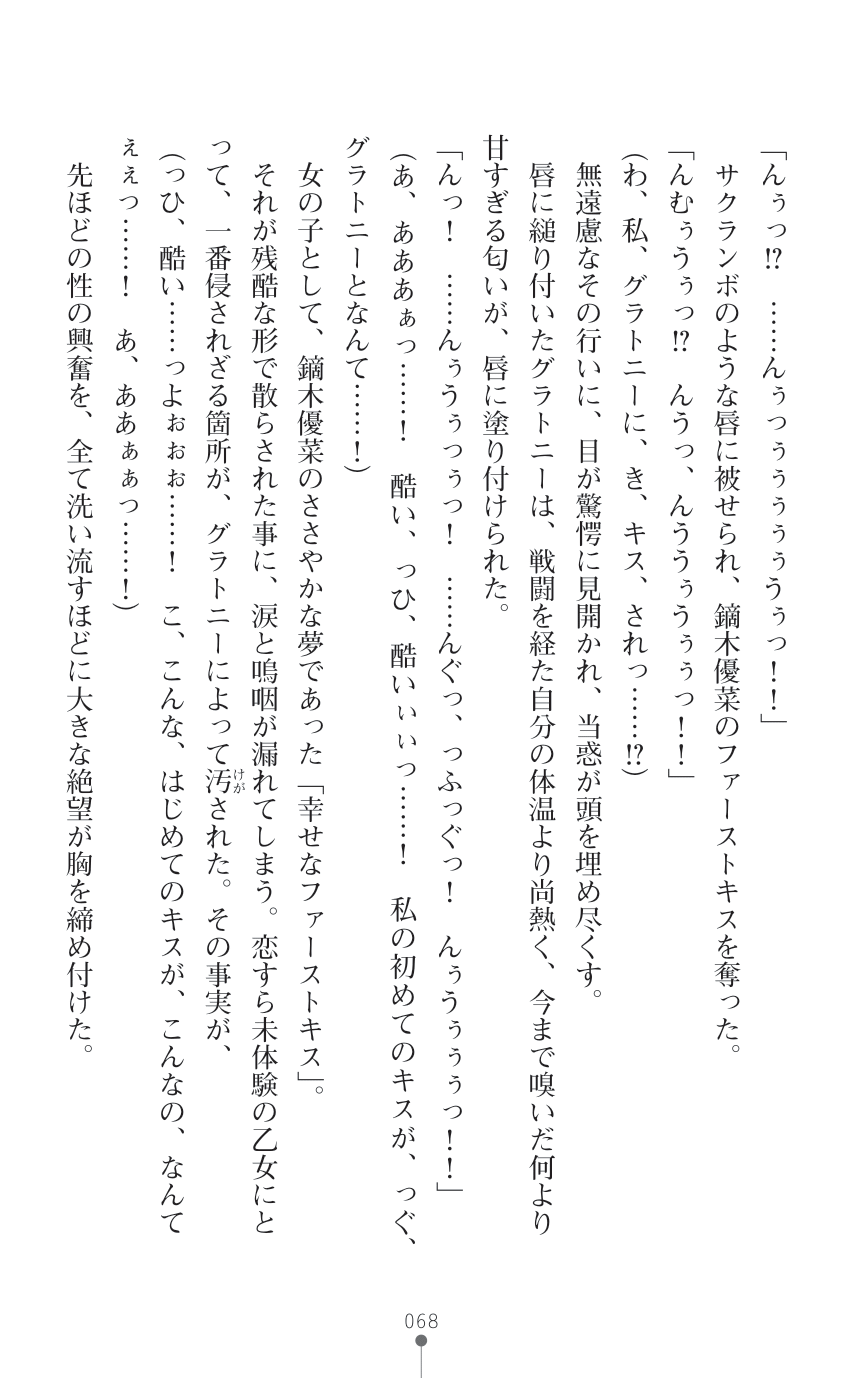 「んぅっ!?　……んぅっぅぅぅぅぅうぅっ！！」
サクランボのような唇に被せられ、鏑木優菜のファーストキスを奪った。
「んむぅうぅっ!?　んうっ、んううぅうぅぅっ！！」
(わ、私、グラトニーに、き、キス、されっ……!?)
無遠慮なその行いに、目が驚愕に見開かれ、当惑が頭を埋め尽くす。
唇に縋り付いたグラトニーは、戦闘を経た自分の体温より尚熱く、今まで嗅いだ何より
甘すぎる匂いが、唇に塗り付けられた。
「んっ！　……んぅうぅっぅっ！　……んぐっ、っふっぐっ！　んぅうぅぅぅっ！！」
(あ、あああぁっ……！　酷い、っひ、酷いぃぃっ……！　私の初めてのキスが、っぐ、
グラトニーとなんて……！)
女の子として、鏑木優菜のささやかな夢であった「幸せなファーストキス」。
それが残酷な形で散らされた事に、涙と嗚咽が漏れてしまう。恋すら未体験の乙女にと
って、一番侵されざる箇所が、グラトニーによって汚された。その事実が、
けが
(っひ、酷い……っよぉぉぉ……！　こ、こんな、はじめてのキスが、こんなの、なんて
ぇぇっ……！　あ、ああぁぁっ……！)
先ほどの性の興奮を、全て洗い流すほどに大きな絶望が胸を締め付けた。
068